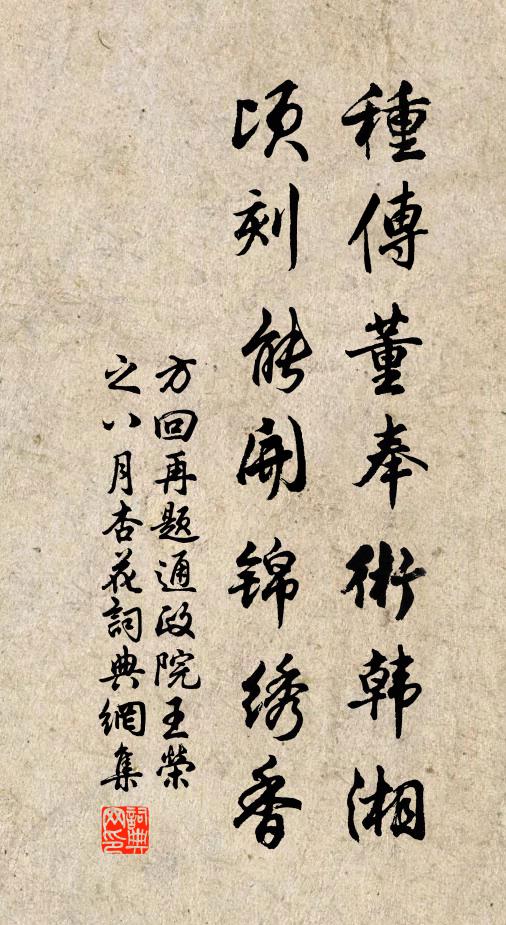 種傳董奉術韩湘
頃刻能開锦绣香
方回再题通政院王榮
之八月杏花詞典網集
詞典
网印